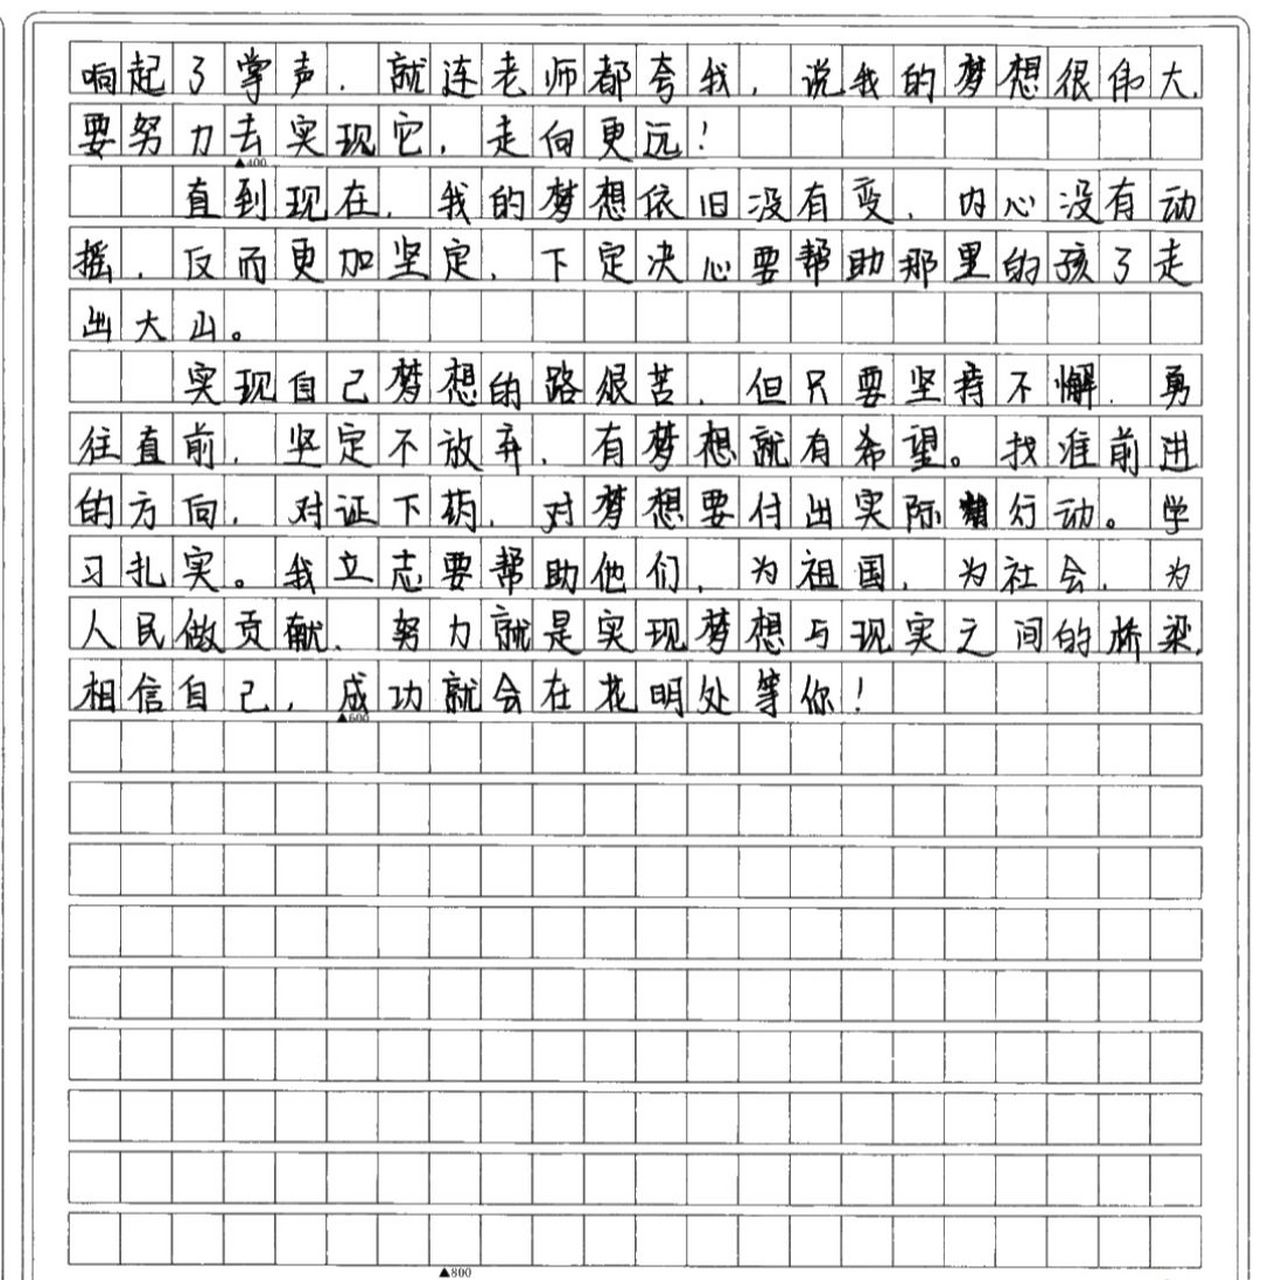 响起了掌声，就连老师都夸我，说我的梦想很伟大，
要努力去实现它，走向更远！
▲400
直到现在，我的梦想依旧没有变，内心没有动
摇，反而更加坚定，下定决心要帮助那里的孩子走
出大山。
实现自己梦想的路很苦，但只要坚持不懈，勇
往直前，坚定不放弃，有梦想就有希望。找准前进
的方向，对证下药，对梦想要付出实际行动。学
习扎实。我立志要帮助他们，为祖国，为社会，为
人民做贡献，努力就是实现梦想与现实之间的桥梁，
相信自己，成功就会在花明处等你！
▲600
▲800